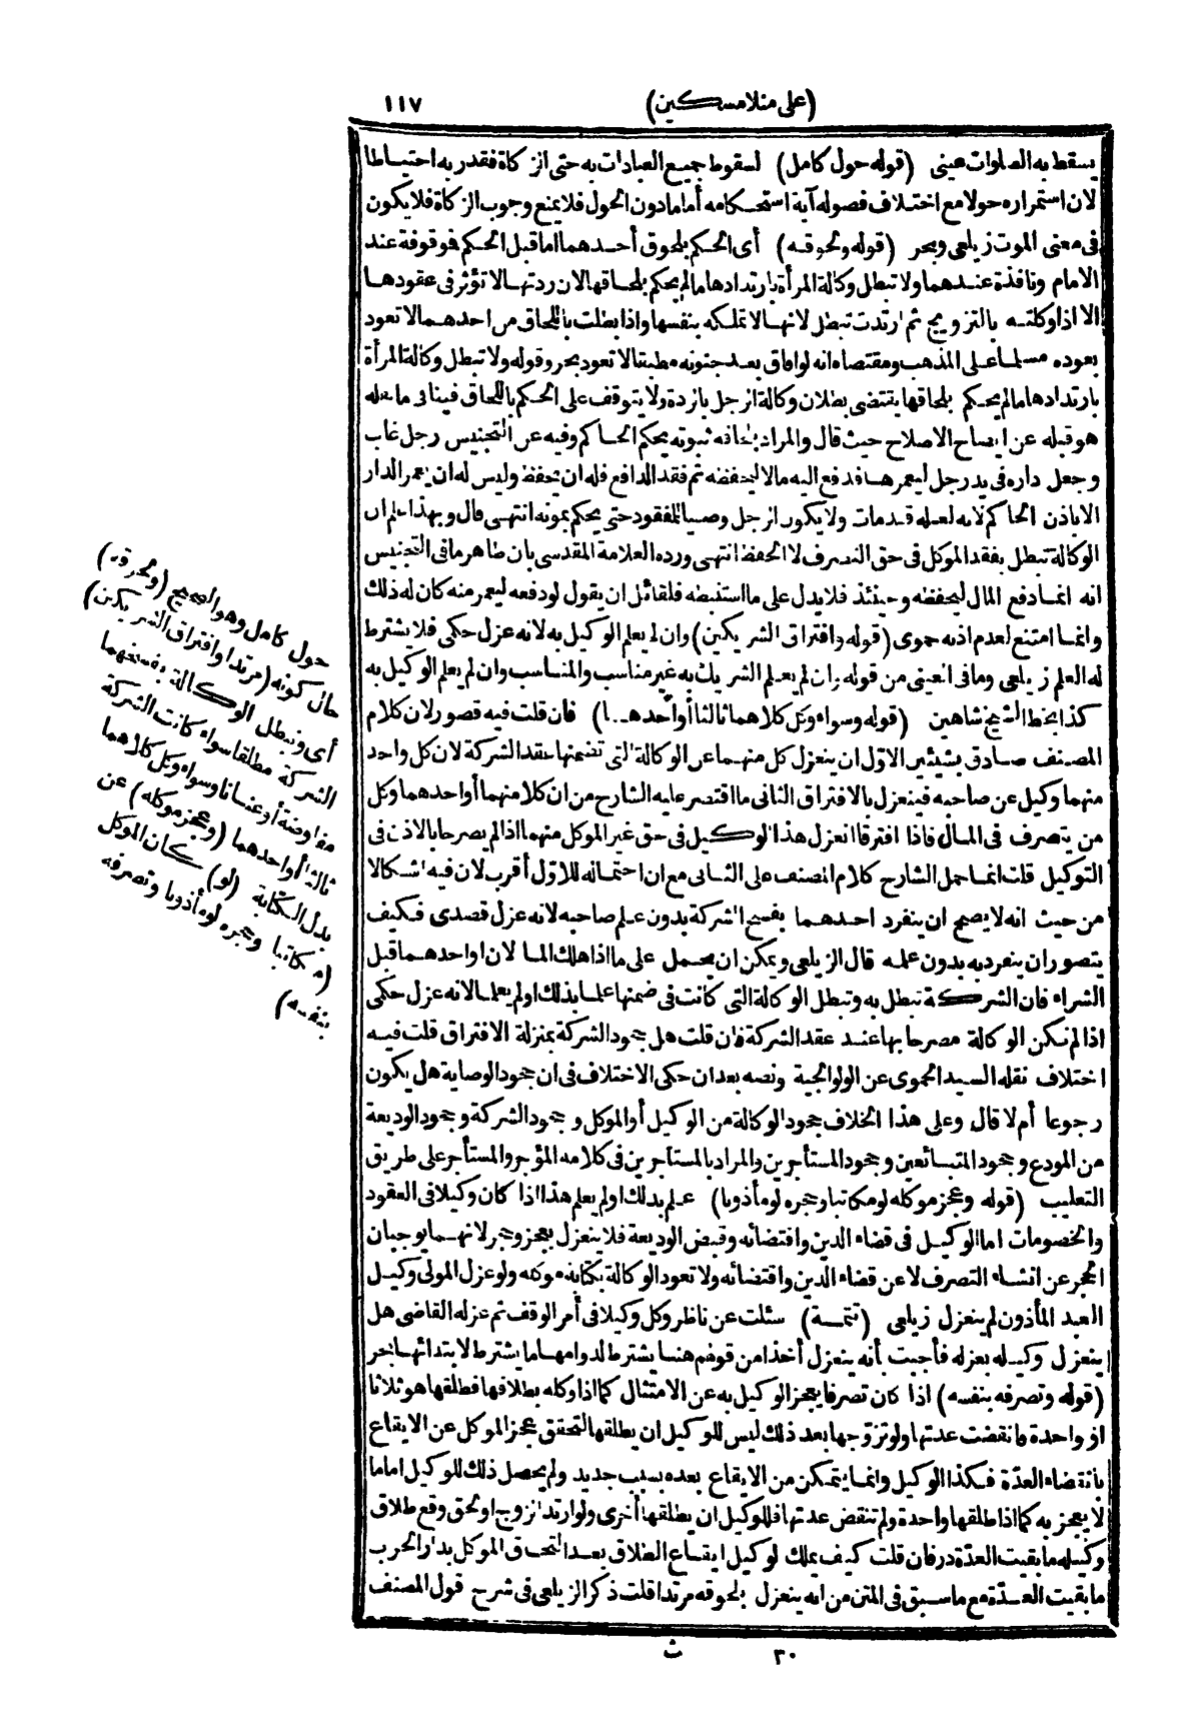 (على منلا مسكين) ١١٧
يسقط به الصلوات عينى (قوله حول كامل) لسقوط جميع العبادات به حتى الزكاة فقدر به احتياطا
لان استمراره حولا مع اختلاف فصوله آية استحكامه أما مادون الحول فلا يمنع وجوب الزكاة فلا يكون
فى معنى الموت زيلعى وبحر (قوله ولحوقه) أى الحكم بلحوق أحدهما اما قبل الحكم فموقوفة عند
الامام ونافذة عندهما ولا تبطل وكالة المرأة بارتدادها مالم يحكم بلحاقها لان ردتها لا تؤثر فى عقودها
الا اذا وكلته بالتزويج ثم ارتدت تبطل لانها لا تملكه بنفسها واذا بطلت باللحاق من احدهما لا تعود
بعوده مسلما على المذهب ومقتضاه انه لو افاق بعد جنونه مطبقا لا تعود بحر وقوله ولا تبطل وكالة المرأة
بارتدادها مالم يحكم بلحاقها يقتضى بطلان وكالة الرجل بالردة ولا يتوقف على الحكم باللحاق فينافى ما نقله
هو قبله عن ايضاح الاصلاح حيث قال والمراد بلحاقه ثبوته بحكم الحاكم وفيه عن التجنيس رجل غاب
وجعل داره فى يد رجل ليعمرها فدفع اليه مالا ليحفظه ثم فقد الدافع فله ان يحفظ وليس له ان يعمر الدار
الا باذن الحاكم لانه لعله قد مات ولا يكون الرجل وصيا للمفقود حتى يحكم بموته انتهى قال وبهذا علم ان
الوكالة تبطل بفقد الموكل فى حق التصرف لا الحفظ انتهى ورده العلامة المقدسى بان ظاهر ما فى التجنيس
انه انما دفع المال ليحفظه وحينئذ فلا يدل على ما استنبطه فلقائل ان يقول لو دفعه ليعمر منه كان له ذلك
وانما امتنع لعدم اذنه حموى (قوله وافتراق الشريكين) وان لم يعلم الوكيل به لانه عزل حكمى فلا يشترط
له العلم زيلعى وما فى العينى من قوله وان لم يعلم الشريك به غير مناسب والمناسب وان لم يعلم الوكيل به
كذا بخط الشيخ شاهين (قوله وسواء وكل كلاهما ثالثا أو أحدهما) فان قلت فيه قصور لان كلام
المصنف صادق بشيئين الاوّل ان ينعزل كل منهما عن الوكالة التى تضمنها عقد الشركة لان كل واحد
منهما وكيل عن صاحبه فينعزل بالافتراق الثانى ما اقتصر عليه الشارح من ان كلا منهما أو احدهما وكل
من يتصرف فى المال فاذا افترقا انعزل هذا الوكيل فى حق غير الموكل منهما اذا لم يصرحا بالاذن فى
التوكيل قلت انما حمل الشارح كلام المصنف على الثانى مع ان احتماله للاوّل أقرب لان فيه اشكالا
من حيث انه لا يصح ان ينفرد احدهما بفسخ الشركة بدون علم صاحبه لانه عزل قصدى فكيف
يتصور ان ينفرد به بدون علمه قال الزيلعى ويمكن ان يحمل على ما اذا هلك المالان او احدهما قبل
الشراء فان الشركة تبطل به وتبطل الوكالة التى كانت فى ضمنها علما بذلك او لم يعلما لانه عزل حكمى
اذا لم تكن الوكالة مصرحا بها عند عقد الشركة فان قلت هل جحود الشركة بمنزلة الافتراق قلت فيه
اختلاف نقله السيد الحموى عن الولوالجية ونصه بعد ان حكى الاختلاف فى ان جحود الوصاية هل يكون
رجوعا أم لا قال وعلى هذا الخلاف جحود الوكالة من الوكيل أو الموكل وجحود الشركة وجحود الوديعة
من المودع وجحود المتبائعين وجحود المستأجرين والمراد بالمستأجرين فى كلامه المؤجر والمستأجر على طريق
التغليب (قوله وعجز موكله لو مكاتبا وحجره لو مأذونا) علم بذلك او لم يعلم هذا اذا كان وكيلا فى العقود
والخصومات اما الوكيل فى قضاء الدين واقتضائه وقبض الوديعة فلا ينعزل بعجز وحجر لانهما يوجبان
الحجر عن انشاء التصرف لا عن قضاء الدين واقتضائه ولا تعود الوكالة بكتابة موكله ولو عزل المولى وكيل
العبد المأذون لم ينعزل زيلعى (تتمة) سئلت عن ناظر وكل وكيلا فى أمر الوقف ثم عزله القاضى هل
ينعزل وكيله بعزله فأجبت بأنه ينعزل أخذا من قولهم هنا يشترط لدوامها ما يشترط لابتدائها بحر
(قوله وتصرفه بنفسه) اذا كان تصرفا يعجز الوكيل به عن الامتثال كما اذا وكله بطلاقها فطلقها هو ثلاثا
او واحدة وانقضت عدتها ولو تزوجها بعد ذلك ليس للوكيل ان يطلقها لتحقق عجز الموكل عن الايقاع
بانقضاء العدّة فكذا الوكيل وانما يتمكن من الايقاع بعده بسبب جديد ولم يحصل ذلك للوكيل اما ما
لا يعجز به كما اذا طلقها واحدة ولم تنقض عدتها فللوكيل ان يطلقها أخرى ولو ارتد الزوج او لحق وقع طلاق
وكيله ما بقيت العدّة در فان قلت كيف يملك الوكيل ايقاع الطلاق بعد التحاق الموكل بدار الحرب
ما بقيت العدّة مع ما سبق فى المتن من انه ينعزل بلحوقه مرتدا قلت ذكر الزيلعى فى شرح قول المصنف
حول كامل وهو الصحيح (ولحوقه)
حال كونه (مرتدا وافتراق الشريكين)
أى وتبطل الوكالة بفسخهما
الشركة مطلقا سواء كانت الشركة
مفاوضة أو عنانا وسواء وكل كلاهما
ثالثا أو احدهما (وعجز موكله) عن
بدل الكتابة (لو) كان الموكل
(مكاتبا وحجره لو مأذونا وتصرفه
بنفسه)
٣٠ ث